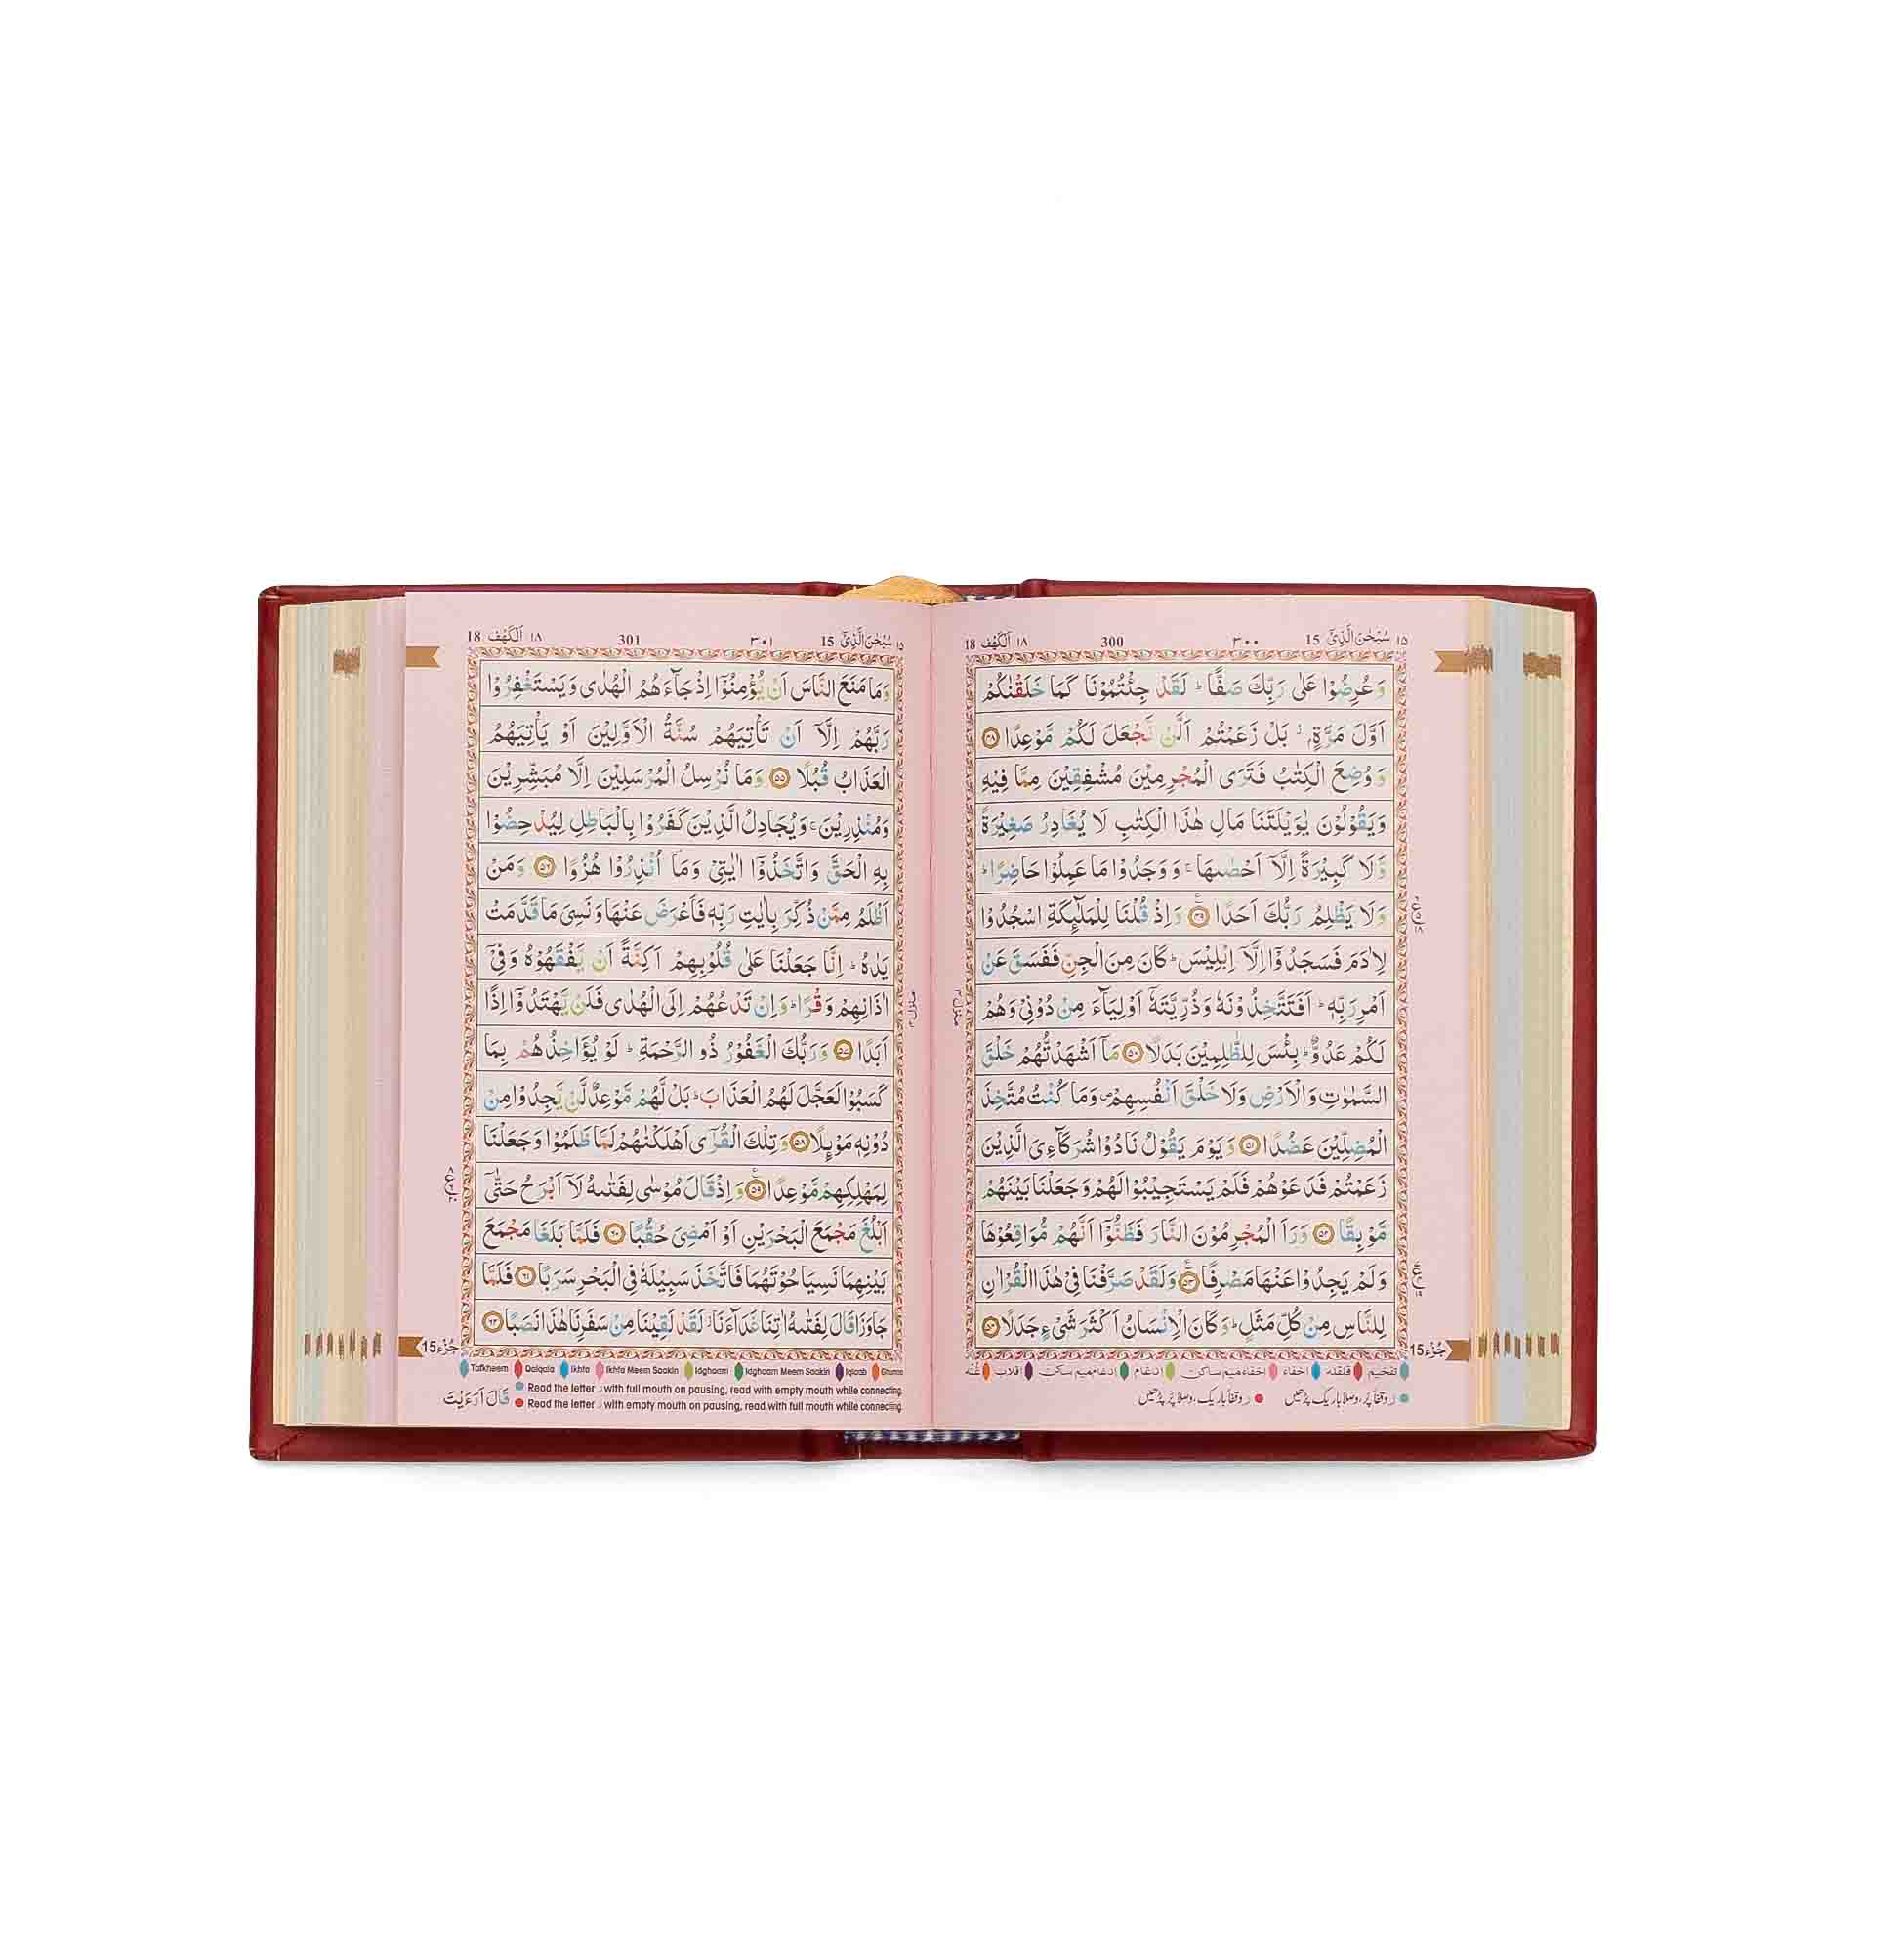 ١٥ سُبْحٰنَ الَّذِیْٓ 15
٣٠٠
300
١٨ اَلْكَهْف 18
وَ عُرِضُوْا عَلٰى رَبِّكَ صَفًّا ؕ لَقَدْ جِئْتُمُوْنَا كَمَا خَلَقْنٰكُمْ
اَوَّلَ مَرَّةٍۭ ؗ بَلْ زَعَمْتُمْ اَلَّنْ نَّجْعَلَ لَكُمْ مَّوْعِدًا ﴿٤٨﴾
وَ وُضِعَ الْكِتٰبُ فَتَرَى الْمُجْرِمِيْنَ مُشْفِقِيْنَ مِمَّا فِيْهِ
وَ يَقُوْلُوْنَ يٰوَيْلَتَنَا مَالِ هٰذَا الْكِتٰبِ لَا يُغَادِرُ صَغِيْرَةً
وَّ لَا كَبِيْرَةً اِلَّاۤ اَحْصٰىهَا ۚ وَ وَجَدُوْا مَا عَمِلُوْا حَاضِرًا ؕ
وَ لَا يَظْلِمُ رَبُّكَ اَحَدًا ﴿٤٩﴾ وَ اِذْ قُلْنَا لِلْمَلٰٓىِٕكَةِ اسْجُدُوْا
لِاٰدَمَ فَسَجَدُوْۤا اِلَّاۤ اِبْلِيْسَ ؕ كَانَ مِنَ الْجِنِّ فَفَسَقَ عَنْ
اَمْرِ رَبِّهٖ ؕ اَفَتَتَّخِذُوْنَهٗ وَ ذُرِّيَّتَهٗۤ اَوْلِيَآءَ مِنْ دُوْنِيْ وَ هُمْ
لَكُمْ عَدُوٌّ ؕ بِئْسَ لِلظّٰلِمِيْنَ بَدَلًا ﴿٥٠﴾ مَاۤ اَشْهَدْتُّهُمْ خَلْقَ
السَّمٰوٰتِ وَ الْاَرْضِ وَ لَا خَلْقَ اَنْفُسِهِمْ ۪ وَ مَا كُنْتُ مُتَّخِذَ
الْمُضِلِّيْنَ عَضُدًا ﴿٥١﴾ وَ يَوْمَ يَقُوْلُ نَادُوْا شُرَكَآءِيَ الَّذِيْنَ
زَعَمْتُمْ فَدَعَوْهُمْ فَلَمْ يَسْتَجِيْبُوْا لَهُمْ وَ جَعَلْنَا بَيْنَهُمْ
مَّوْبِقًا ﴿٥٢﴾ وَ رَاَ الْمُجْرِمُوْنَ النَّارَ فَظَنُّوْۤا اَنَّهُمْ مُّوَاقِعُوْهَا
وَ لَمْ يَجِدُوْا عَنْهَا مَصْرِفًا ﴿٥٣﴾ وَ لَقَدْ صَرَّفْنَا فِيْ هٰذَا الْقُرْاٰنِ
لِلنَّاسِ مِنْ كُلِّ مَثَلٍ ؕ وَ كَانَ الْاِنْسَانُ اَكْثَرَ شَيْءٍ جَدَلًا ﴿٥٤﴾
جُزْء15
تفخیم قلقلہ اخفاء اخفاءمیم ساکن ادغام ادغام میم ساکن اقلاب غُنّہ
ر وقفاً پُر، وصلاً باریک پڑھیں ر وقفاً باریک، وصلاً پُر پڑھیں
١٥ سُبْحٰنَ الَّذِیْٓ 15
٣٠١
301
١٨ اَلْكَهْف 18
وَ مَا مَنَعَ النَّاسَ اَنْ يُّؤْمِنُوْۤا اِذْ جَآءَهُمُ الْهُدٰى وَ يَسْتَغْفِرُوْا
رَبَّهُمْ اِلَّاۤ اَنْ تَاْتِيَهُمْ سُنَّةُ الْاَوَّلِيْنَ اَوْ يَاْتِيَهُمُ
الْعَذَابُ قُبُلًا ﴿٥٥﴾ وَ مَا نُرْسِلُ الْمُرْسَلِيْنَ اِلَّا مُبَشِّرِيْنَ
وَ مُنْذِرِيْنَ ۚ وَ يُجَادِلُ الَّذِيْنَ كَفَرُوْا بِالْبَاطِلِ لِيُدْحِضُوْا
بِهِ الْحَقَّ وَ اتَّخَذُوْۤا اٰيٰتِيْ وَ مَاۤ اُنْذِرُوْا هُزُوًا ﴿٥٦﴾ وَ مَنْ
اَظْلَمُ مِمَّنْ ذُكِّرَ بِاٰيٰتِ رَبِّهٖ فَاَعْرَضَ عَنْهَا وَ نَسِيَ مَا قَدَّمَتْ
يَدٰهُ ؕ اِنَّا جَعَلْنَا عَلٰى قُلُوْبِهِمْ اَكِنَّةً اَنْ يَّفْقَهُوْهُ وَ فِيْۤ
اٰذَانِهِمْ وَقْرًا ؕ وَ اِنْ تَدْعُهُمْ اِلَى الْهُدٰى فَلَنْ يَّهْتَدُوْۤا اِذًا
اَبَدًا ﴿٥٧﴾ وَ رَبُّكَ الْغَفُوْرُ ذُو الرَّحْمَةِ ؕ لَوْ يُؤَاخِذُهُمْ بِمَا
كَسَبُوْا لَعَجَّلَ لَهُمُ الْعَذَابَ ؕ بَلْ لَّهُمْ مَّوْعِدٌ لَّنْ يَّجِدُوْا مِنْ
دُوْنِهٖ مَوْىِٕلًا ﴿٥٨﴾ وَ تِلْكَ الْقُرٰۤى اَهْلَكْنٰهُمْ لَمَّا ظَلَمُوْا وَ جَعَلْنَا
لِمَهْلِكِهِمْ مَّوْعِدًا ﴿٥٩﴾ وَ اِذْ قَالَ مُوْسٰى لِفَتٰىهُ لَاۤ اَبْرَحُ حَتّٰۤى
اَبْلُغَ مَجْمَعَ الْبَحْرَيْنِ اَوْ اَمْضِيَ حُقُبًا ﴿٦٠﴾ فَلَمَّا بَلَغَا مَجْمَعَ
بَيْنِهِمَا نَسِيَا حُوْتَهُمَا فَاتَّخَذَ سَبِيْلَهٗ فِي الْبَحْرِ سَرَبًا ﴿٦١﴾ فَلَمَّا
جَاوَزَا قَالَ لِفَتٰىهُ اٰتِنَا غَدَآءَنَا ؗ لَقَدْ لَقِيْنَا مِنْ سَفَرِنَا هٰذَا نَصَبًا ﴿٦٢﴾
جُزْء15
Tafkheem Qalqala Ikhfa Ikhfa Meem Saakin Idghaam Idghaam Meem Saakin Iqlaab Ghunna
Read the letter ر with full mouth on pausing, read with empty mouth while connecting.
Read the letter ر with empty mouth on pausing, read with full mouth while connecting.
قَالَ اَرَءَيْتَ